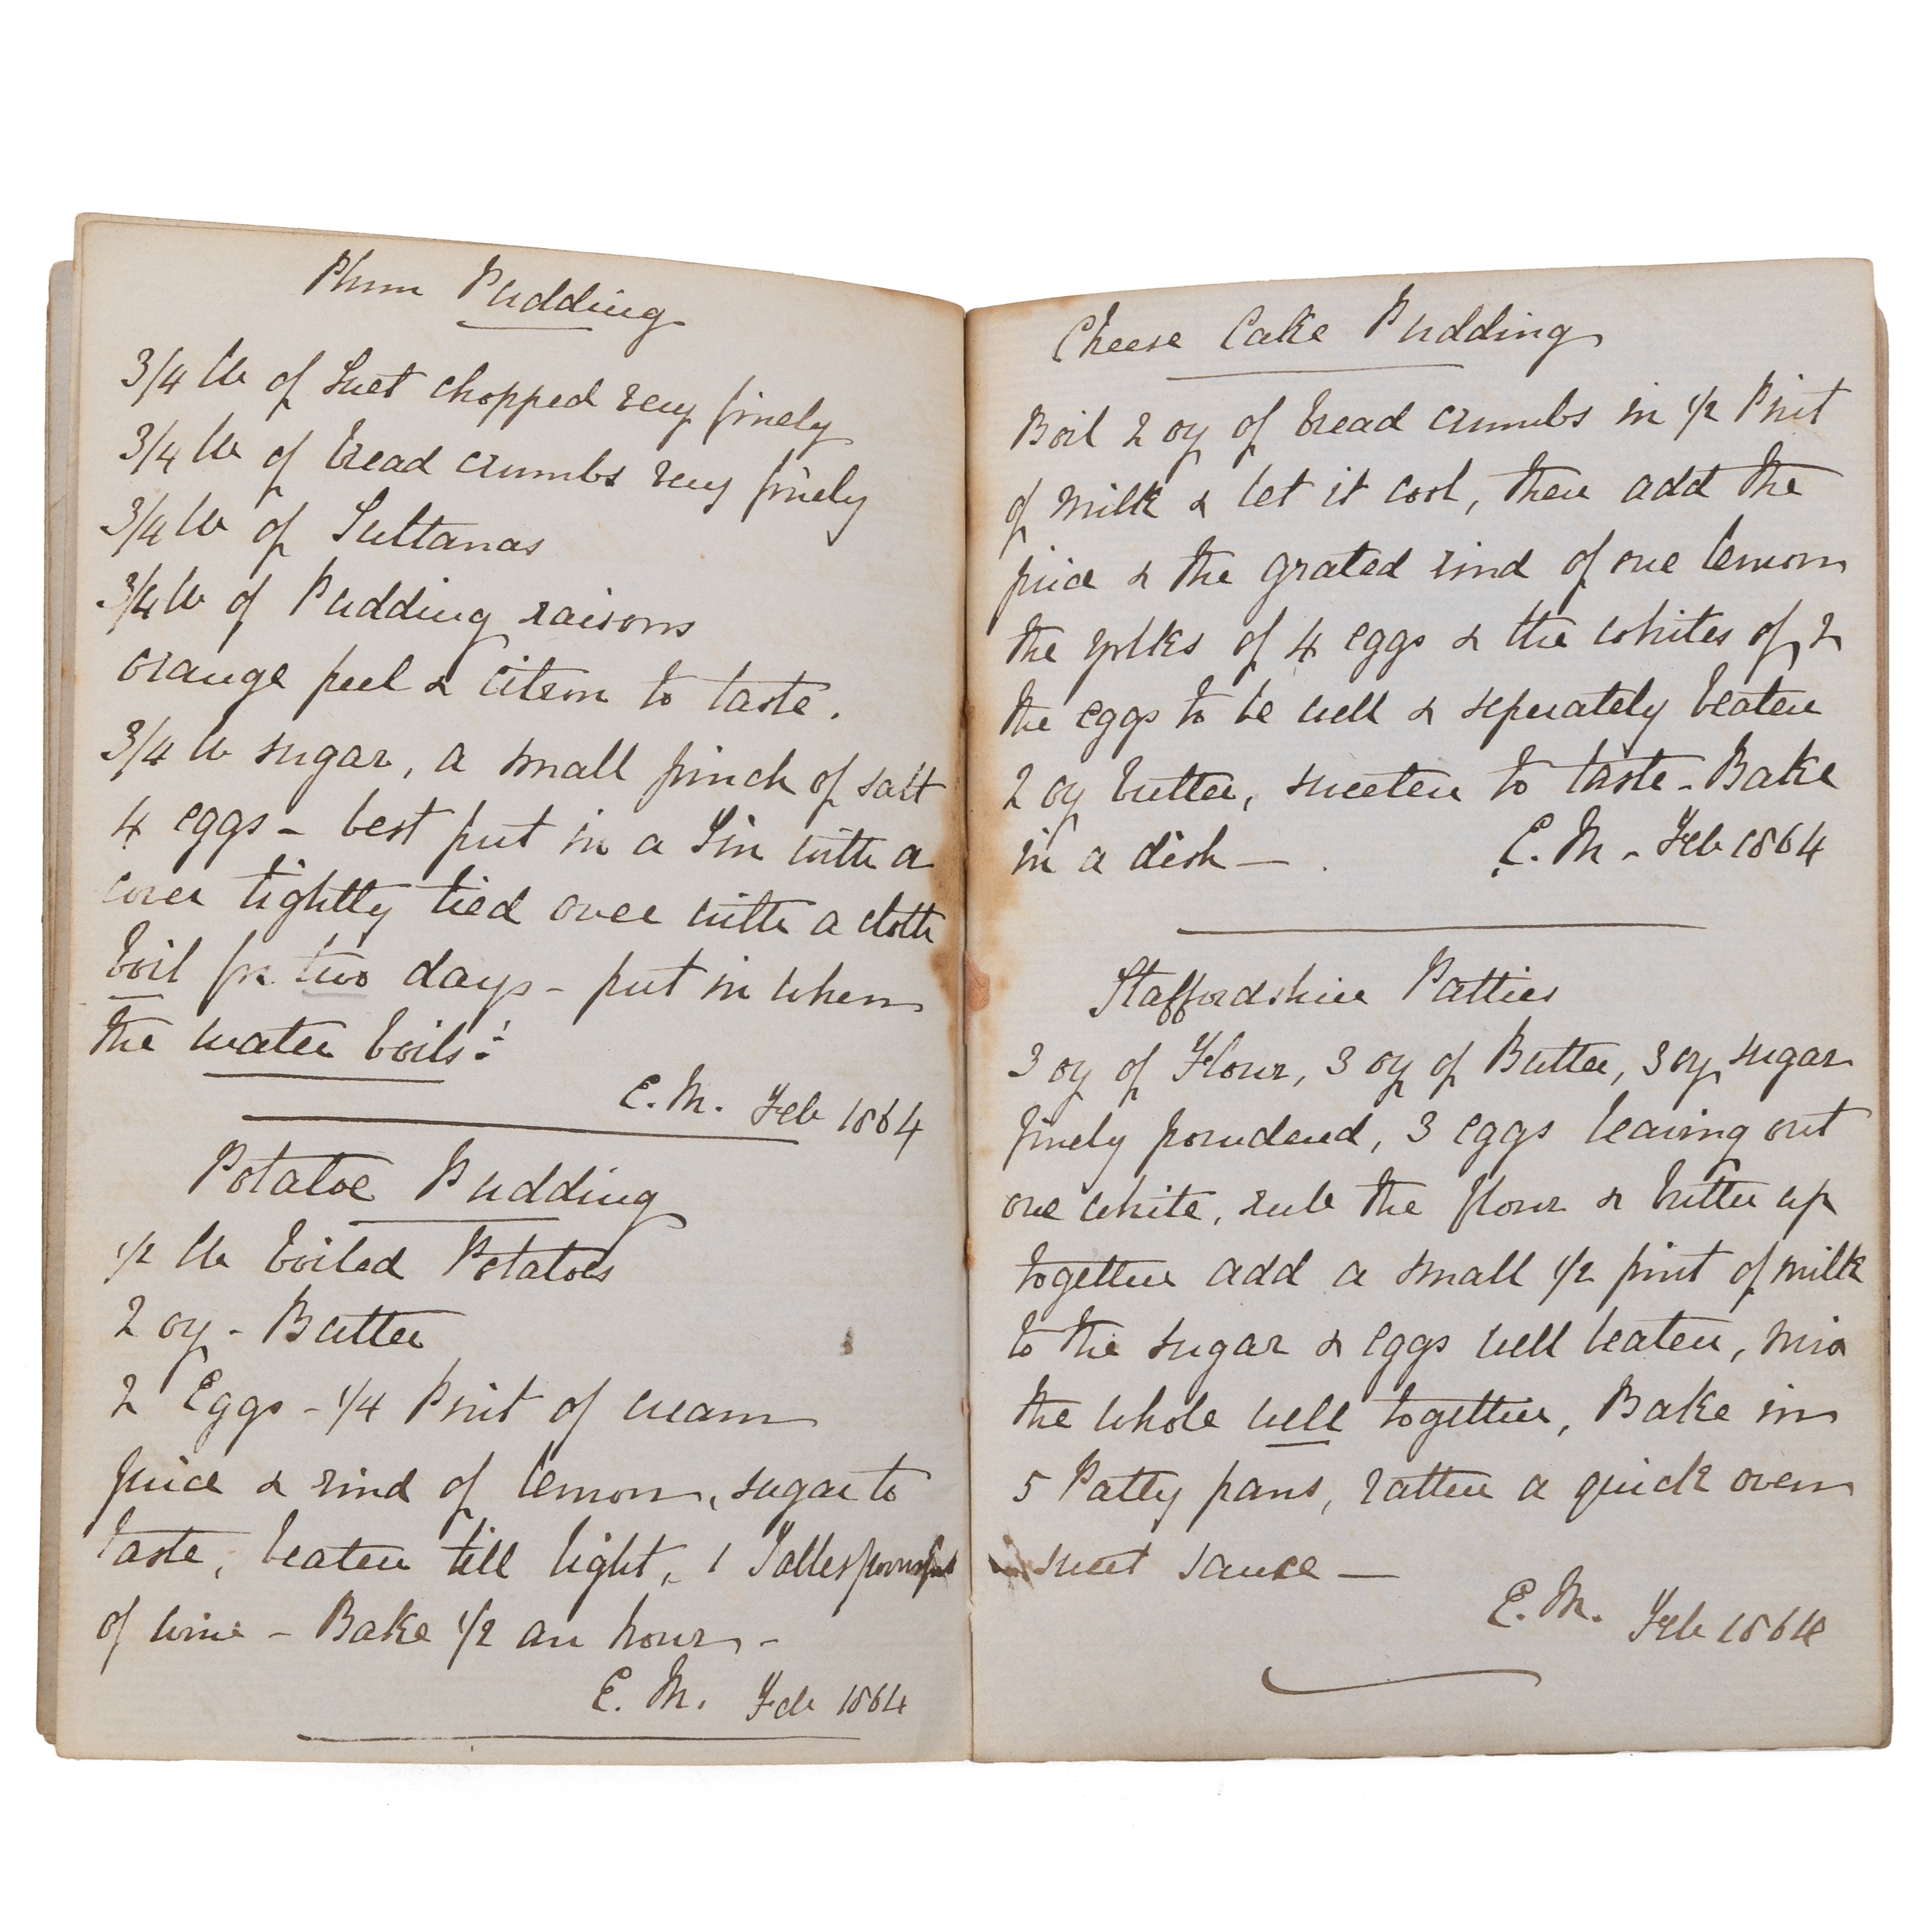 Plum Pudding
3/4 lb of Suet chopped very finely
3/4 lb of bread crumbs very finely
3/4 lb of Sultanas
3/4 lb of Pudding raisons
orange peel & citron to taste.
3/4 lb sugar, a small pinch of salt
4 eggs - best put in a Tin with a
cover tightly tied over with a cloth
boil for two days - put in when
the water boils!
E. M. Feb 1864
Potatoe Pudding
1/2 lb boiled Potatoes
2 oz - Butter
2 Eggs - 1/4 Pint of cream
juice & rind of lemon, sugar to
taste, beaten till light, 1 Tablespoonful
of wine - Bake 1/2 an hour -
E. M. Feb 1864
Cheese Cake Pudding
Boil 2 oz of bread crumbs in 1/2 Pint
of milk & let it cool, then add the
juice & the grated rind of one lemon
the yolks of 4 eggs & the whites of 2
the eggs to be well & seperately beaten
2 oz butter, sweeten to taste - Bake
in a dish -
E. M - Feb 1864
Staffordshire Patties
3 oz of Flour, 3 oz of Butter, 3 oz sugar
finely poundered, 3 eggs leaving out
one white, rub the flour & butter up
together add a small 1/2 pint of milk
to the sugar & eggs well beaten, mix
the whole well together, Bake in
5 Patty pans, rather a quick oven
sweet sauce -
E. M. Feb 1864